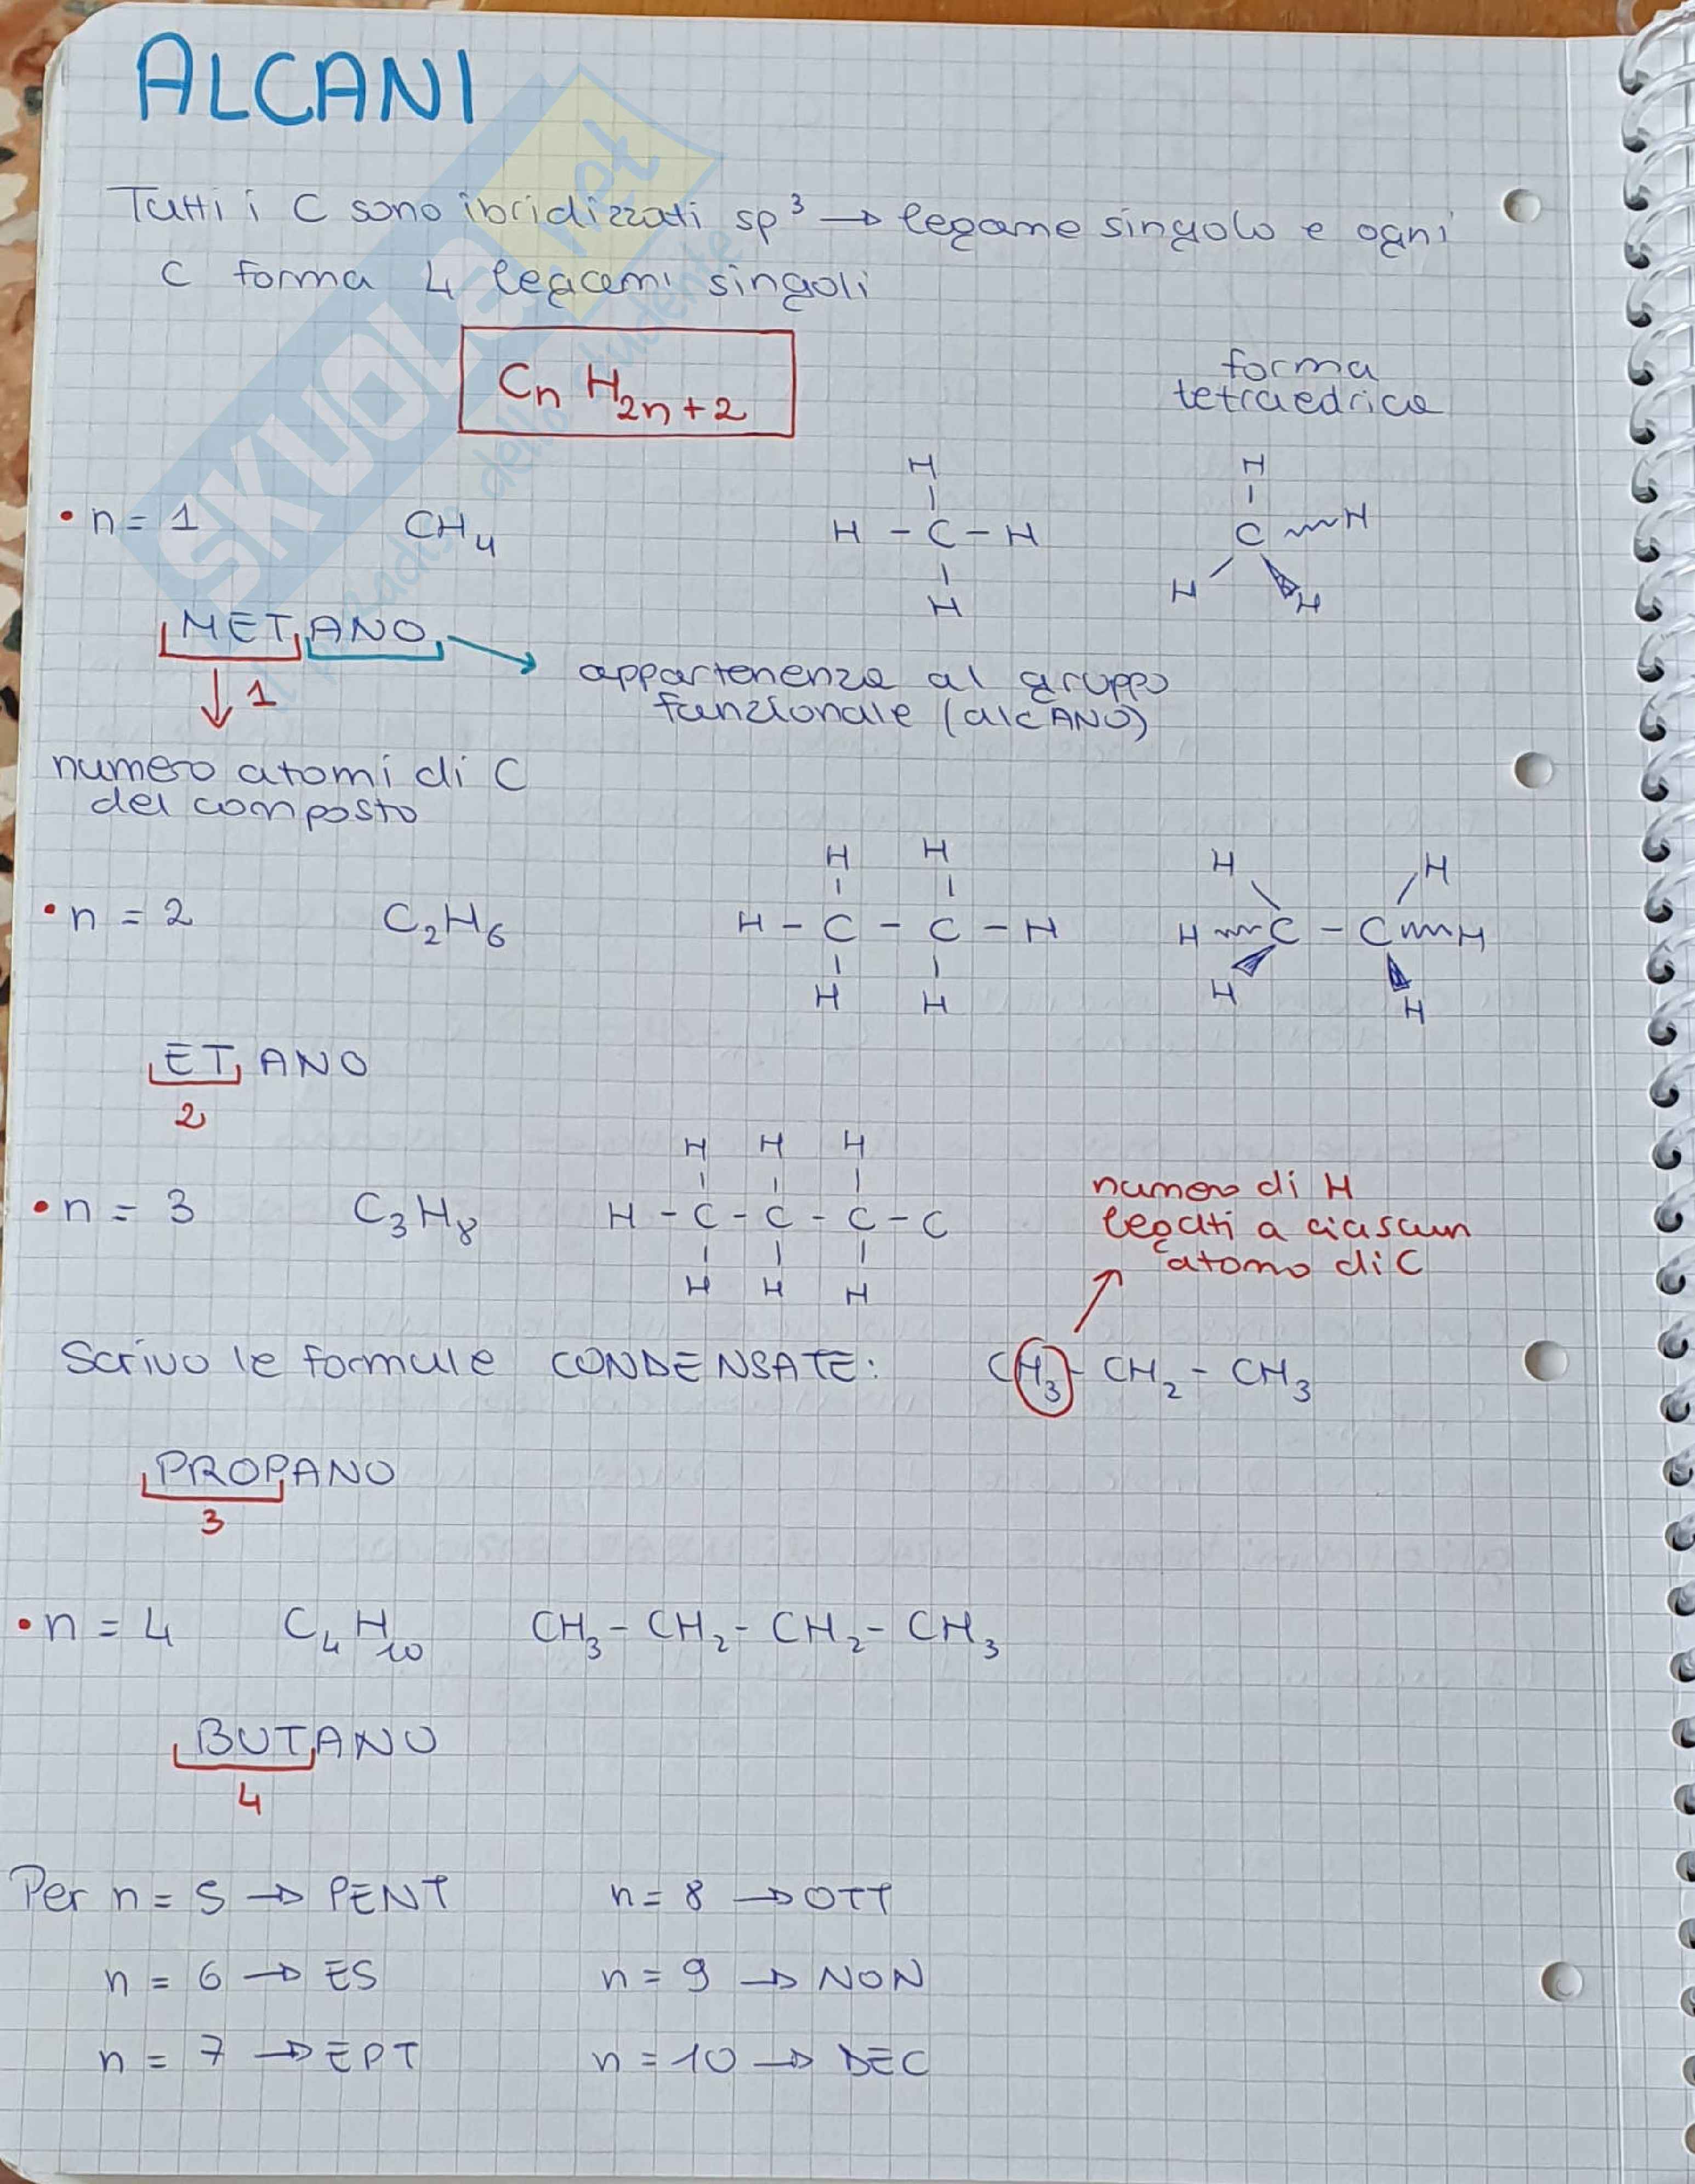 ALCANI
Tutti i C sono ibridizzati sp³ → legame singolo e ogni
C forma 4 legami singoli
CnH2n+2
forma
tetraedrica
H
H
• n = 1 CH4 H - C - H C H
H H H
METANO
appartenenza al gruppo
funzionale (alcANO)
1
numero atomi di C
del composto
H H H H
• n = 2 C2H6 H - C - C - H H C - C H
H H H H
ETANO
2
H H H
• n = 3 C3H8 H - C - C - C - C
H H H
numero di H
legati a ciascun
atomo di C
Scrivo le formule CONDENSATE: CH3 - CH2 - CH3
PROPANO
3
• n = 4 C4H10 CH3 - CH2 - CH2 - CH3
BUTANO
4
Per n = 5 → PENT n = 8 → OTT
n = 6 → ES n = 9 → NON
n = 7 → EPT n = 10 → DEC
SKUOLA.net
il paradiso dello studente